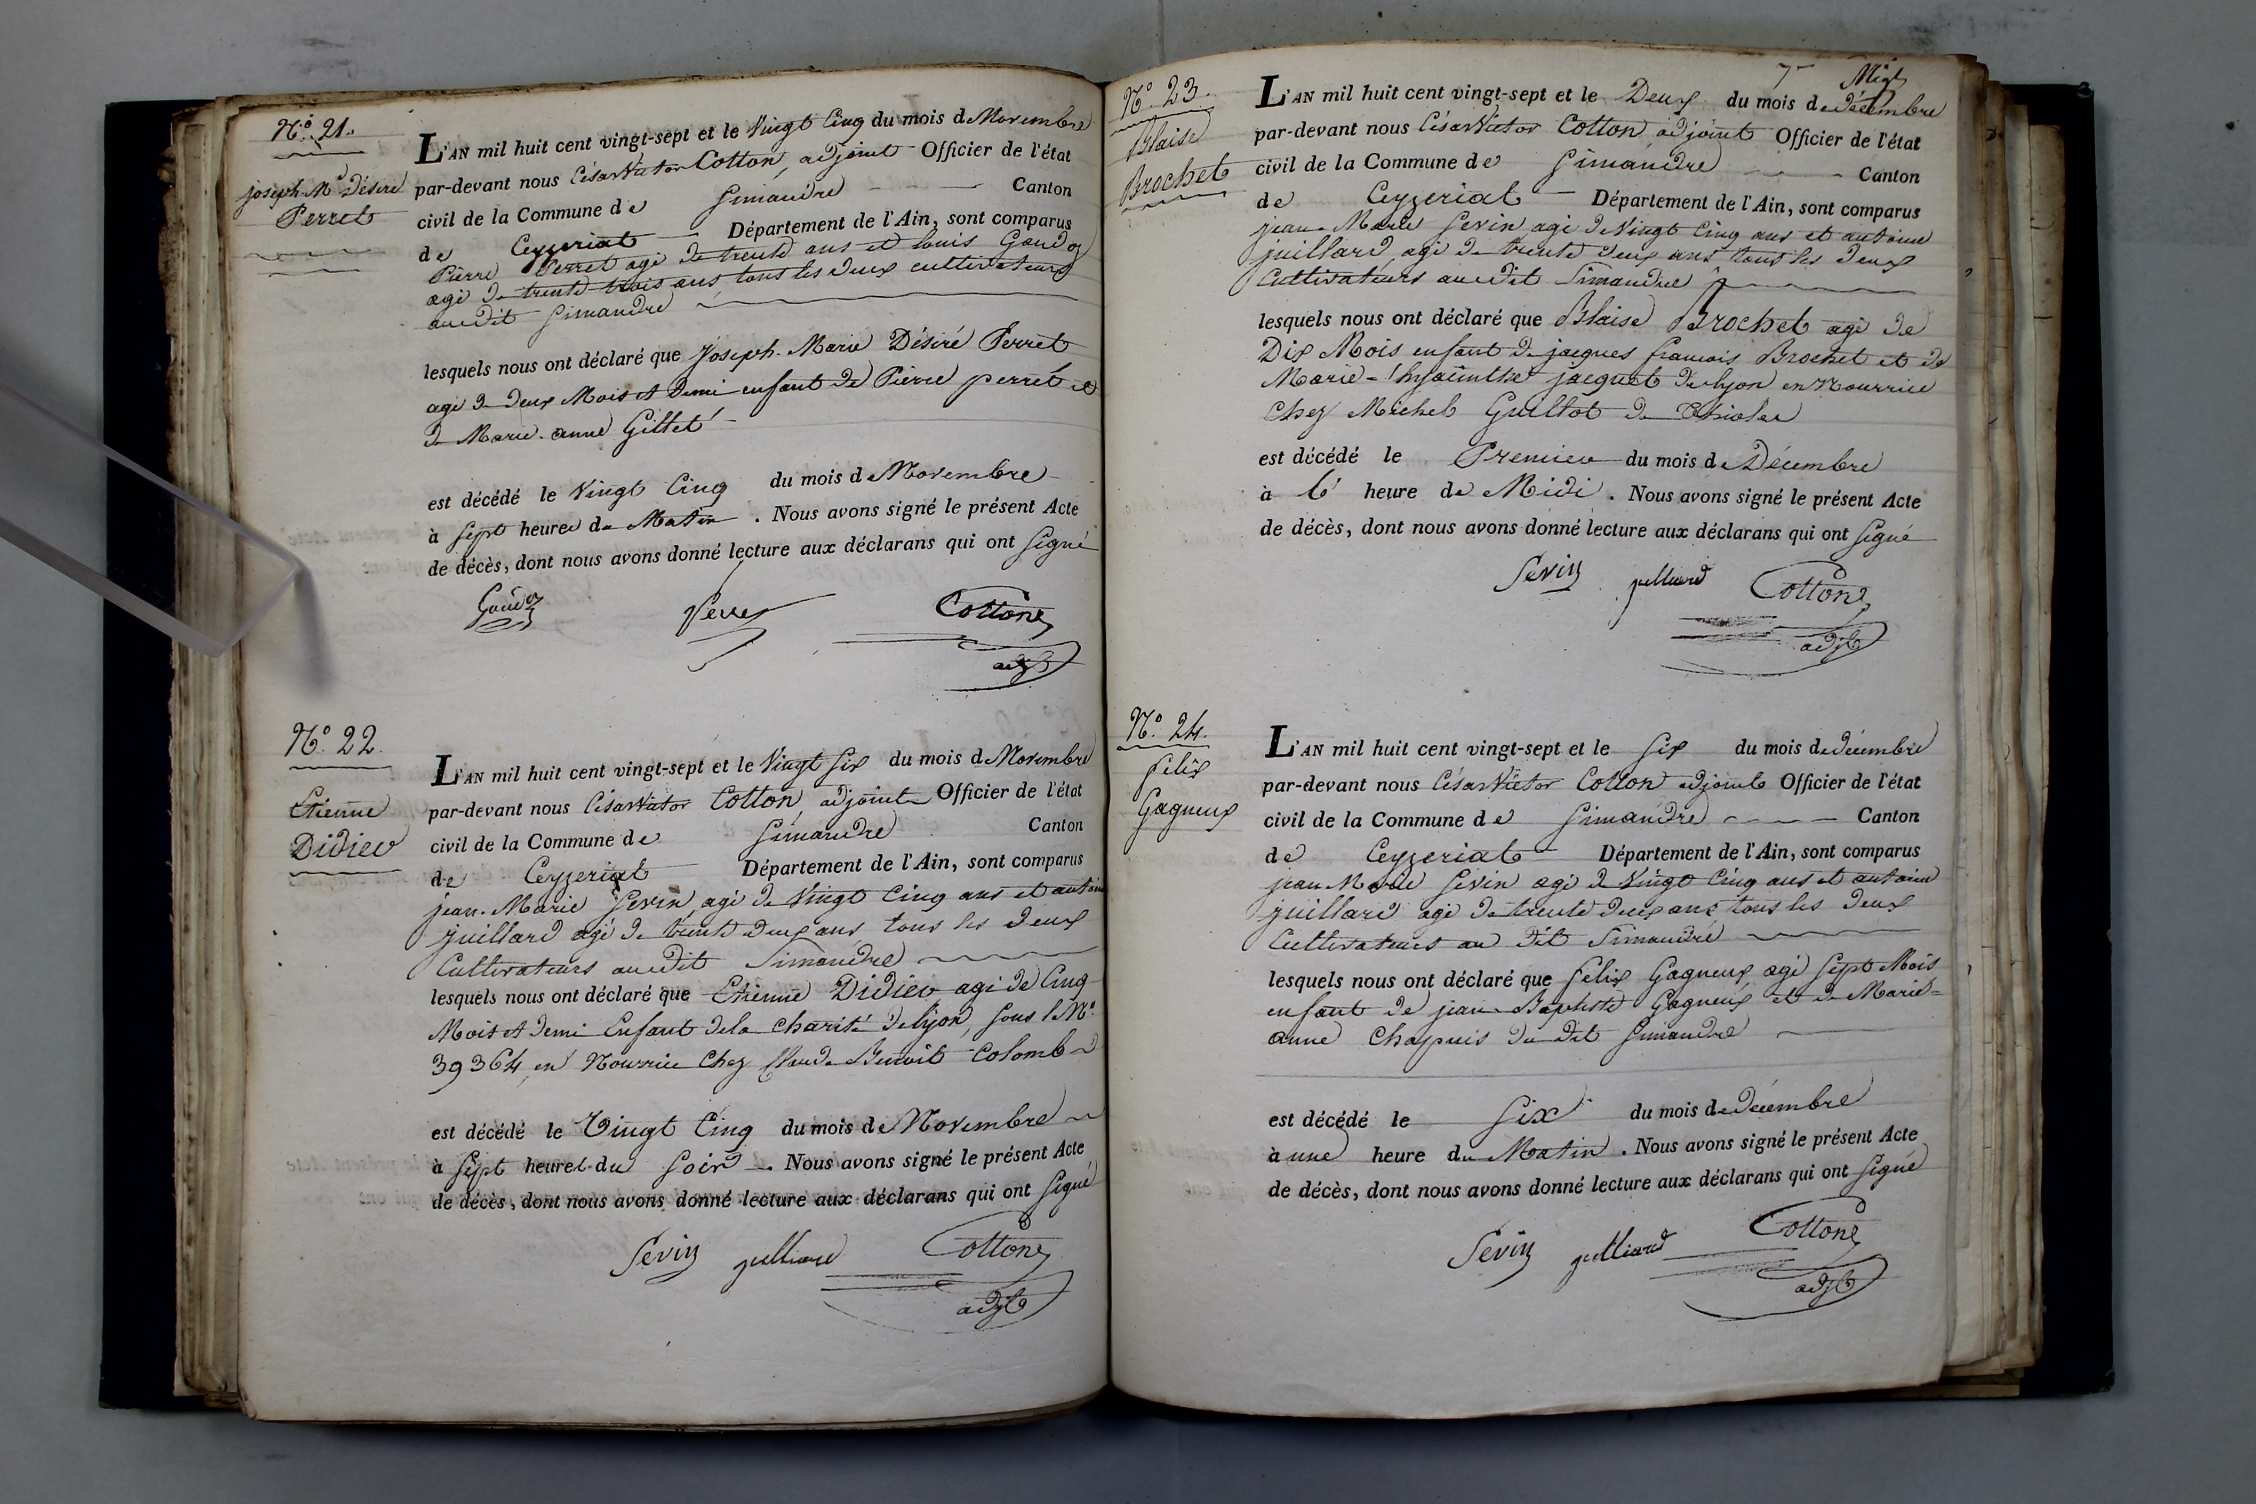 N.º 21.
joseph M.ie Désiré
Perret
L'AN mil huit cent vingt-sept et le Vingt Cinq du mois de Novembre
par-devant nous César Victor Cotton, adjoint Officier de l'état
civil de la Commune de Simandre Canton
de Ceyzeriat Département de l'Ain, sont comparus
Pierre Perret agé de trente ans et louis Goudoz
agé de trente trois ans tous les deux cultivateurs
audit Simandre
lesquels nous ont déclaré que Joseph-Marie Désiré Perret
agé de deux Mois et demi enfant de Pierre perret et
de Marie-anne Gillet
est décédé le Vingt Cinq du mois de Novembre
à Sept heures du Matin. Nous avons signé le présent Acte
de décès, dont nous avons donné lecture aux déclarans qui ont Signé
Goudoz Perret Cotton
adjt
N.º 22.
Etienne
Didier
L'AN mil huit cent vingt-sept et le Vingt Six du mois de Novembre
par-devant nous César Victor Cotton, adjoint Officier de l'état
civil de la Commune de Simandre Canton
de Ceyzeriat Département de l'Ain, sont comparus
jean-Marie Sevin agé de Vingt Cinq ans et antoine
juillard agé de trente deux ans tous les deux
Cultivateurs audit Simandre
lesquels nous ont déclaré que Etienne Didier agé de Cinq
Mois et demi Enfant de la charité de lyon, sous le N.º
39364, en Nourrice Chez Claude Benoit Colomb
est décédé le Vingt Cinq du mois de Novembre
à Sept heures du Soir. Nous avons signé le présent Acte
de décès, dont nous avons donné lecture aux déclarans qui ont Signé
Sevin juilliard Cotton
adjt
N.º 23.
Blaise
Brochet
L'AN mil huit cent vingt-sept et le Deux du mois de décembre
par-devant nous César Victor Cotton adjoint Officier de l'état
civil de la Commune de Simandre Canton
de Ceyzeriat Département de l'Ain, sont comparus
jean-Marie Sevin agé de Vingt Cinq ans et antoine
juillard, agé de trente deux ans tous les deux
Cultivateurs audit Simandre
lesquels nous ont déclaré que Blaise Brochet agé de
Dix Mois enfant de jacques francois Brochet et de
Marie-hyacinthe jacquet de lyon en Nourrice
Chez Michel Guillot de
est décédé le Premier du mois de Décembre
à heure de Midi. Nous avons signé le présent Acte
de décès, dont nous avons donné lecture aux déclarans qui ont Signé
Sevin juilliard Cotton
adjt
N.º 24.
Felix
Gagneux
L'AN mil huit cent vingt-sept et le Six du mois de décembre
par-devant nous César Victor Cotton adjoint Officier de l'état
civil de la Commune de Simandre Canton
de Ceyzeriat Département de l'Ain, sont comparus
jean Marie Sevin agé de Vingt Cinq ans et antoine
juillard agé de trente deux ans tous les deux
Cultivateurs au dit Simandre
lesquels nous ont déclaré que Felix Gagneux agé Sept Mois
enfant de jean-Baptiste Gagneux et de Marie-
anne Chapuis du dit Simandre
est décédé le Six du mois de décembre
à une heure du Matin. Nous avons signé le présent Acte
de décès, dont nous avons donné lecture aux déclarans qui ont Signé
Sevin juilliard Cotton
adjt